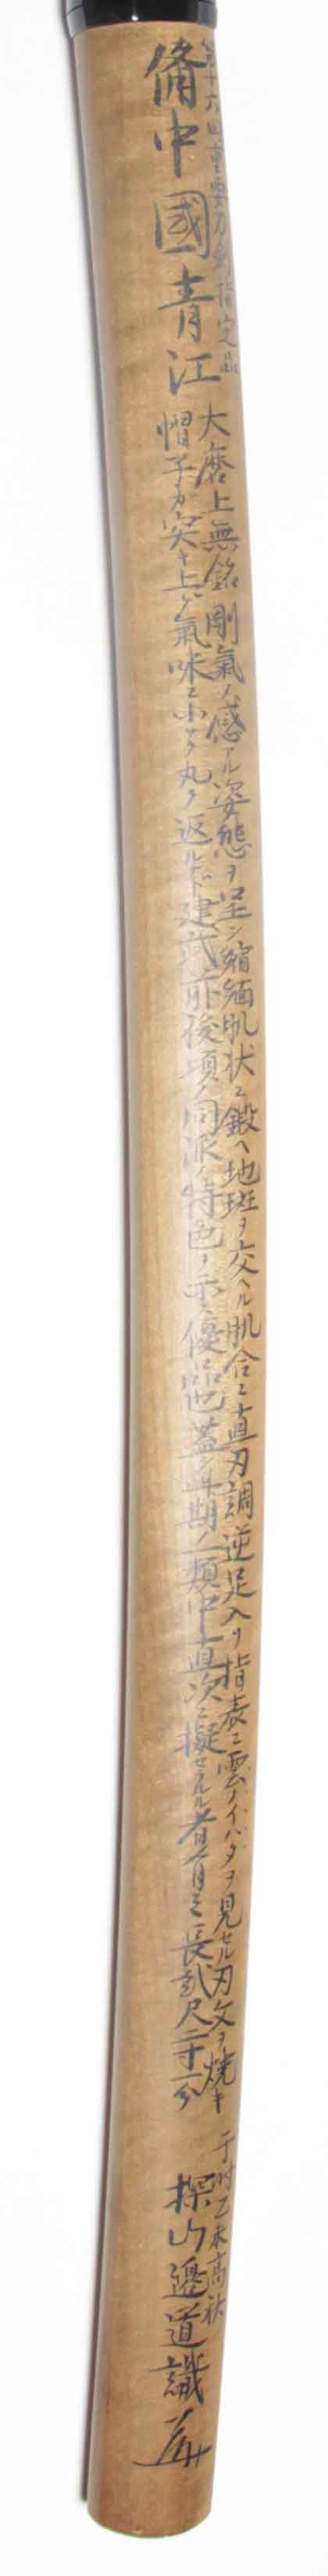 第十六回重要刀剣指定品
備中國青江
大磨上無銘 剛氣ノ感アル姿態ヲ呈シ縮緬肌状ニ鍛ヘ地斑ヲ交ヘル肌合ニ直刃調逆足入リ指表ニ雲ノイハダヲ見セル刃文ヲ焼キ
帽子ガ突キ上ゲ氣味ニ小サク丸ク返ルナド建武前後頃ノ同派ノ特色ノ優品也蓋シ期ノ類中直次ニ擬セラルル者有之 長貳尺二寸一分
于時乙未高秋
探山邉道識